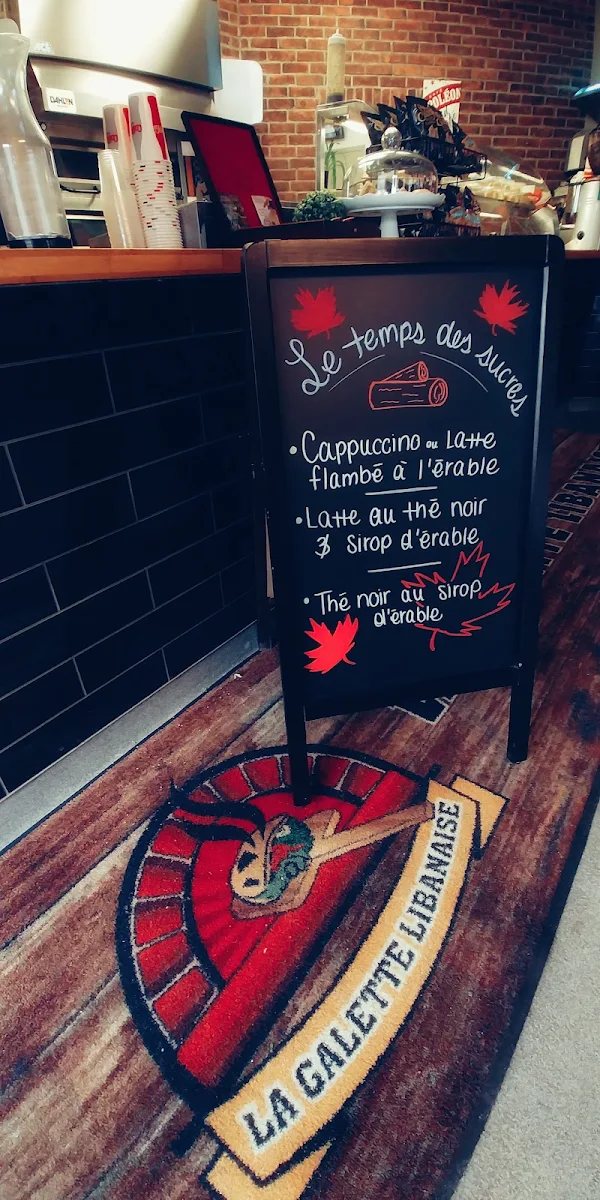 DAHLON
POLÉON
Le temps des sucres
• Cappuccino ou Latte
flambé à l'érable
• Latte au thé noir
& sirop d'érable
• Thé noir au sirop
d'érable
LIBANAISE
LA GALETTE LIBANAISE